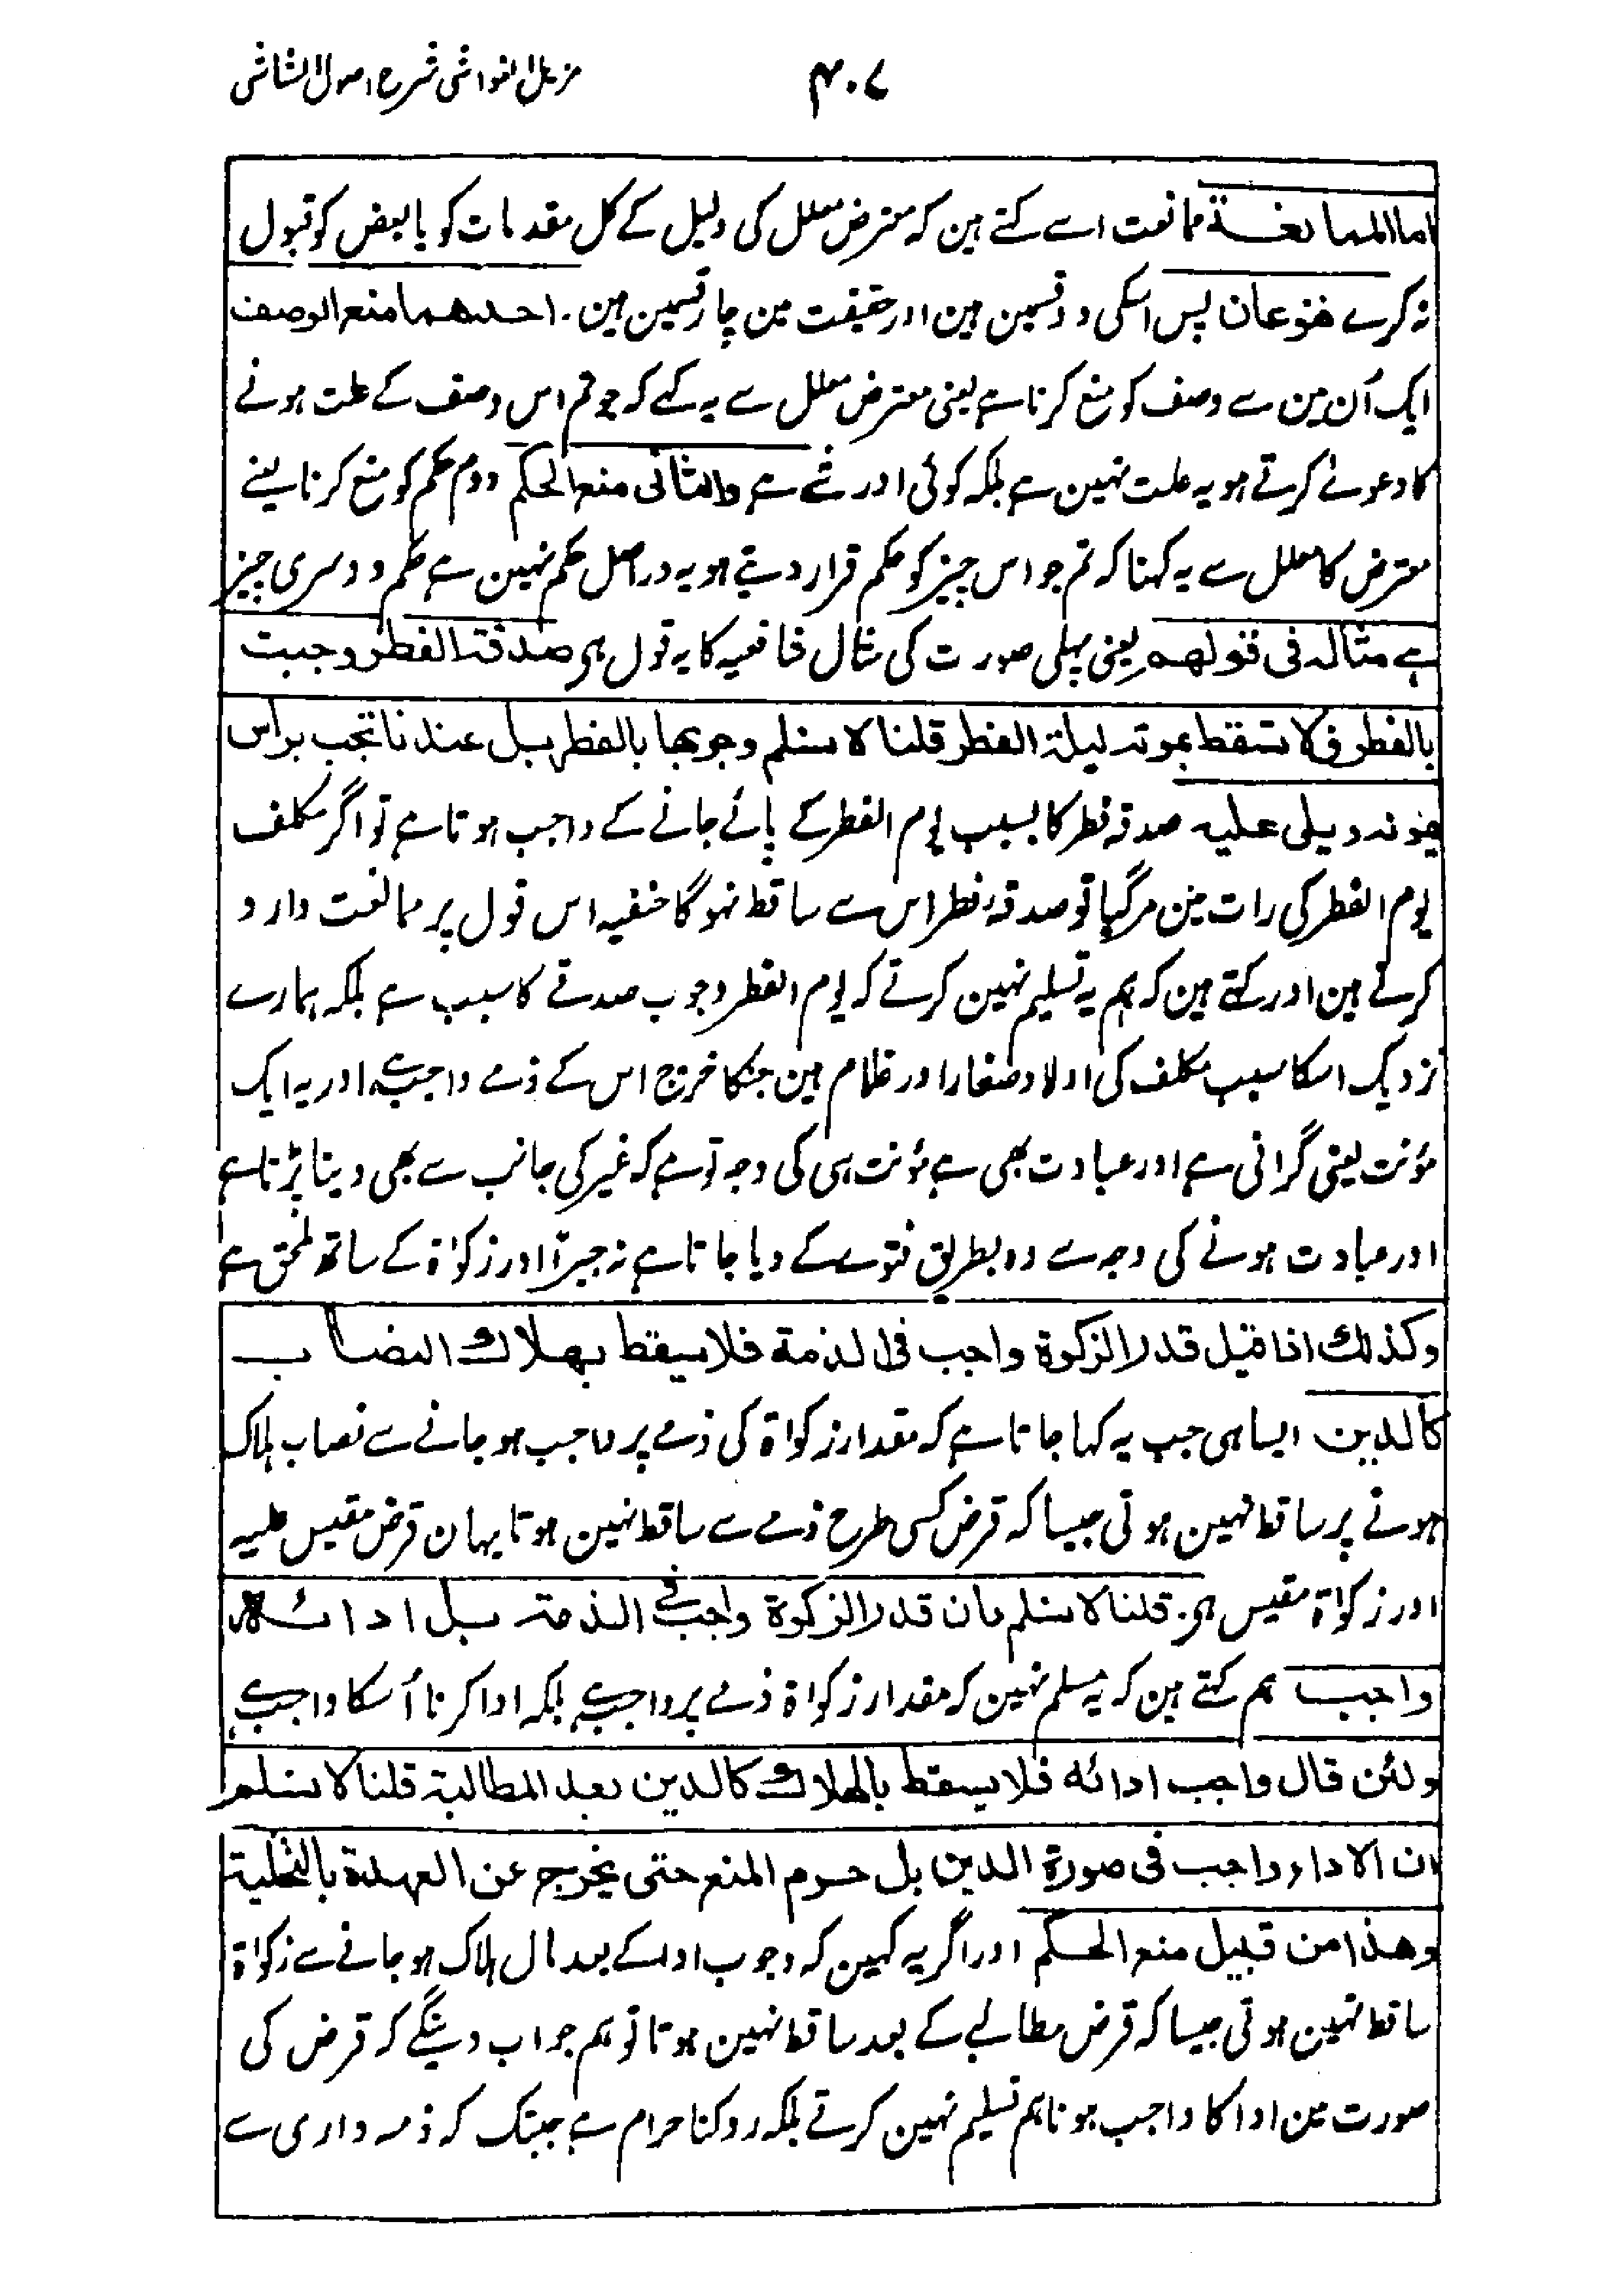 ۴۰۷
مزیل الغواشی شرح اصول الشاشی
اما الممانعة ممانعت اسے کہتے ہین کہ معترض معلل کی دلیل کے کل مقدمات کو یا بعض کو قبول
نہ کرے فنوعان پس اسکی دو قسمین ہین اور حقیقت مین چار قسمین ہین۔ احدهما منع الوصف
ایک اُن مین سے وصف کو منع کرنا ہے یعنی معترض معلل سے یہ کہے کہ جو تم اس وصف کے علت ہونے
کا دعوے کرتے ہو یہ علت نہین ہے بلکہ کوئی اور شے ہے والثانی منع الحکم دوم حکم کو منع کرنا یعنے
معترض کا معلل سے یہ کہنا کہ تم جو اس چیز کو حکم قرار دیتے ہو یہ دراصل حکم نہین ہے حکم دوسری چیز
ہے مثاله فی قولهم یعنی پہلی صورت کی مثال شافعیہ کا یہ قول ہی صدقة الفطر وجبت
بالفطر فلا تسقط بموته لیلة الفطر قلنا لا نسلم وجوبها بالفطر بل عندنا تجب براس
یمونه ویلی علیه صدقہ فطر کا بسبب یوم الفطر کے پائے جانے کے واجب ہوتا ہے تو اگر مکلف
یوم الفطر کی رات مین مرگیا تو صدقۂ فطر اس سے ساقط نہوگا حنفیہ اس قول پر ممانعت وارد
کرتے ہین اور کہتے ہین کہ ہم یہ تسلیم نہین کرتے کہ یوم الفطر وجوب صدقے کا سبب ہے بلکہ ہمارے
نزدیک اسکا سبب مکلف کی اولاد صغار اور غلام ہین جنکا خرج اس کے ذمے واجب ہے اور یہ ایک
مؤنت یعنی گرانی ہے اور عبادت بھی ہے مؤنت ہی کی وجہ تو ہے کہ غیر کی جانب سے بھی دینا پڑتا ہے
اور عبادت ہونے کی وجہ سے وہ بطریق فتوے کے دیا جاتا ہے نہ جبراً اور زکوٰة کے ساتھ ملحق ہے
وکذلك اذا قیل قدر الزکوة واجب فی الذمة فلا یسقط بهلاك النصاب
کالدین ایسا ہی جب یہ کہا جاتا ہے کہ مقدار زکوٰة کی ذمے پر واجب ہو جانے سے نصاب ہلاک
ہونے پر ساقط نہین ہوتی جیسا کہ قرض کسی طرح ذمے سے ساقط نہین ہوتا یہان قرض مقیس علیہ
اور زکوٰة مقیس ہی۔ قلنا لا نسلم بان قدر الزکوة واجب فی الذمة بل اداؤه
واجب ہم کہتے ہین کہ یہ مسلم نہین کہ مقدار زکوٰة ذمے پر واجب ہے بلکہ ادا کرنا اُسکا واجب ہے
ولئن قال واجب ادائه فلا یسقط بالهلاك کالدین بعد المطالبة قلنا لا نسلم
ان الاداء واجب فی صورة الدین بل حرم المنع حتی یخرج عن العهدة بالتخلیة
وهذا من قبیل منع الحکم اور اگر یہ کہین کہ وجوب ادا کے بعد مال ہلاک ہو جانے سے زکوٰة
ساقط نہین ہوتی جیسا کہ قرض مطالبے کے بعد ساقط نہین ہوتا تو ہم جواب دینگے کہ قرض کی
صورت مین ادا کا واجب ہونا ہم تسلیم نہین کرتے بلکہ روکنا حرام ہے جبتک کہ ذمہ داری سے